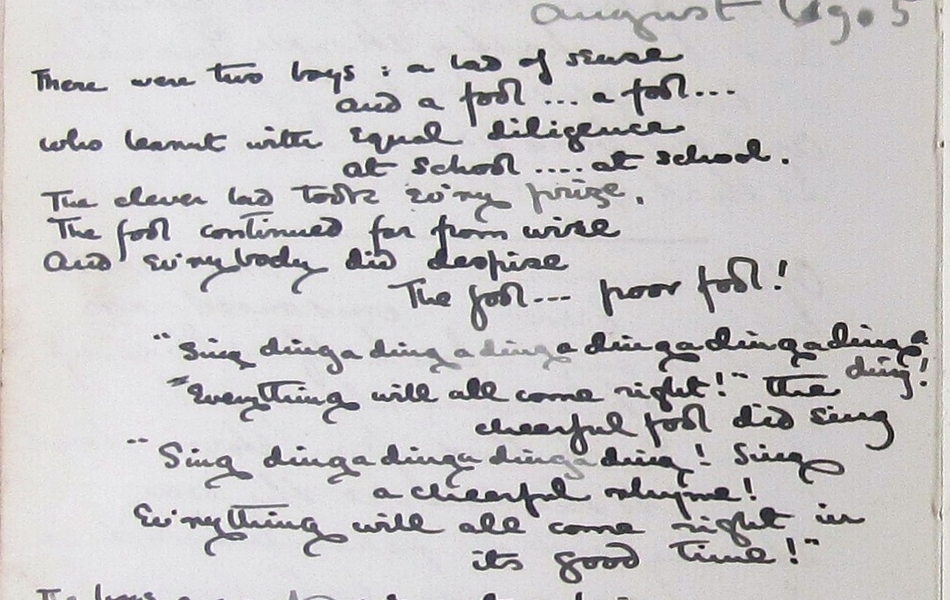 august 1905
There were two boys : a lad of sense
and a fool ... a fool...
who learnt with Equal diligence
at School .... at school.
The clever lad took Ev'ry prize,
The fool continued far from wise
And Ev'rybody did despise
The fool... poor fool!
"Sing dinga ding a dinga dinga dinga dinga
ding!
"Everything will all come right!" the
cheerful fool did Sing
"Sing dinga dinga dinga ding! Sing
a cheerful rhyme!
Ev'rything will all come right in
its good time!"
The boys